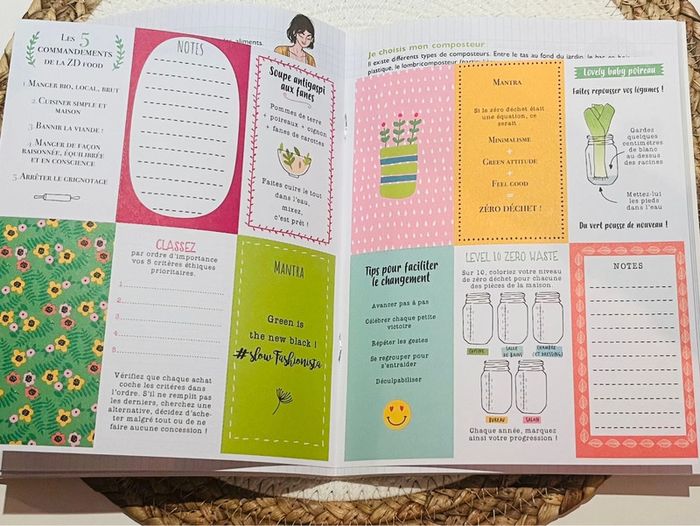 Les 5
commandements
de la ZD food
1. Manger bio, local, brut
2. Cuisiner simple et
maison
3. Bannir la viande !
4. Manger de façon
raisonnée, équilibrée
et en conscience
5. Arrêter le grignotage
NOTES
aliments.
Soupe antigaspi
aux fanes
Pommes de terre
+ poireaux + oignon
+ fanes de carottes
Faites cuire le tout
dans l'eau,
mixez,
c'est prêt !
CLASSEZ
par ordre d'importance
vos 5 critères éthiques
prioritaires.
1
2
3
4
5
Vérifiez que chaque achat
coche les critères dans
l'ordre. S'il ne remplit pas
les derniers, cherchez une
alternative, décidez d'ache-
ter malgré tout ou de ne
faire aucune concession !
MANTRA
Green is
the new black !
#slowFashionista
Je choisis mon composteur
Il existe différents types de composteurs. Entre le tas au fond du jardin, le bac en bois,
plastique, le lombricomposteur
MANTRA
Si le zéro déchet était
une équation, ce
serait
Minimalisme
+
Green attitude
+
Feel good
=
ZÉRO DÉCHET !
Lovely baby poireau
Faites repousser vos légumes !
Gardez
quelques
centimètres
de blanc
au dessus
des racines
Mettez-lui
les pieds
dans l'eau
Du vert pousse de nouveau !
Tips pour faciliter
le changement
Avancer pas à pas
Célébrer chaque petite
victoire
Répéter les gestes
Se regrouper pour
s'entraider
Déculpabiliser
LEVEL 10 ZERO WASTE
Sur 10, coloriez votre niveau
de zéro déchet pour chacune
des pièces de la maison.
CUISINE
SALLE
DE BAINS
CHAMBRE
(ET DRESSING)
BUREAU
SALON
Chaque année, marquez
ainsi votre progression !
NOTES